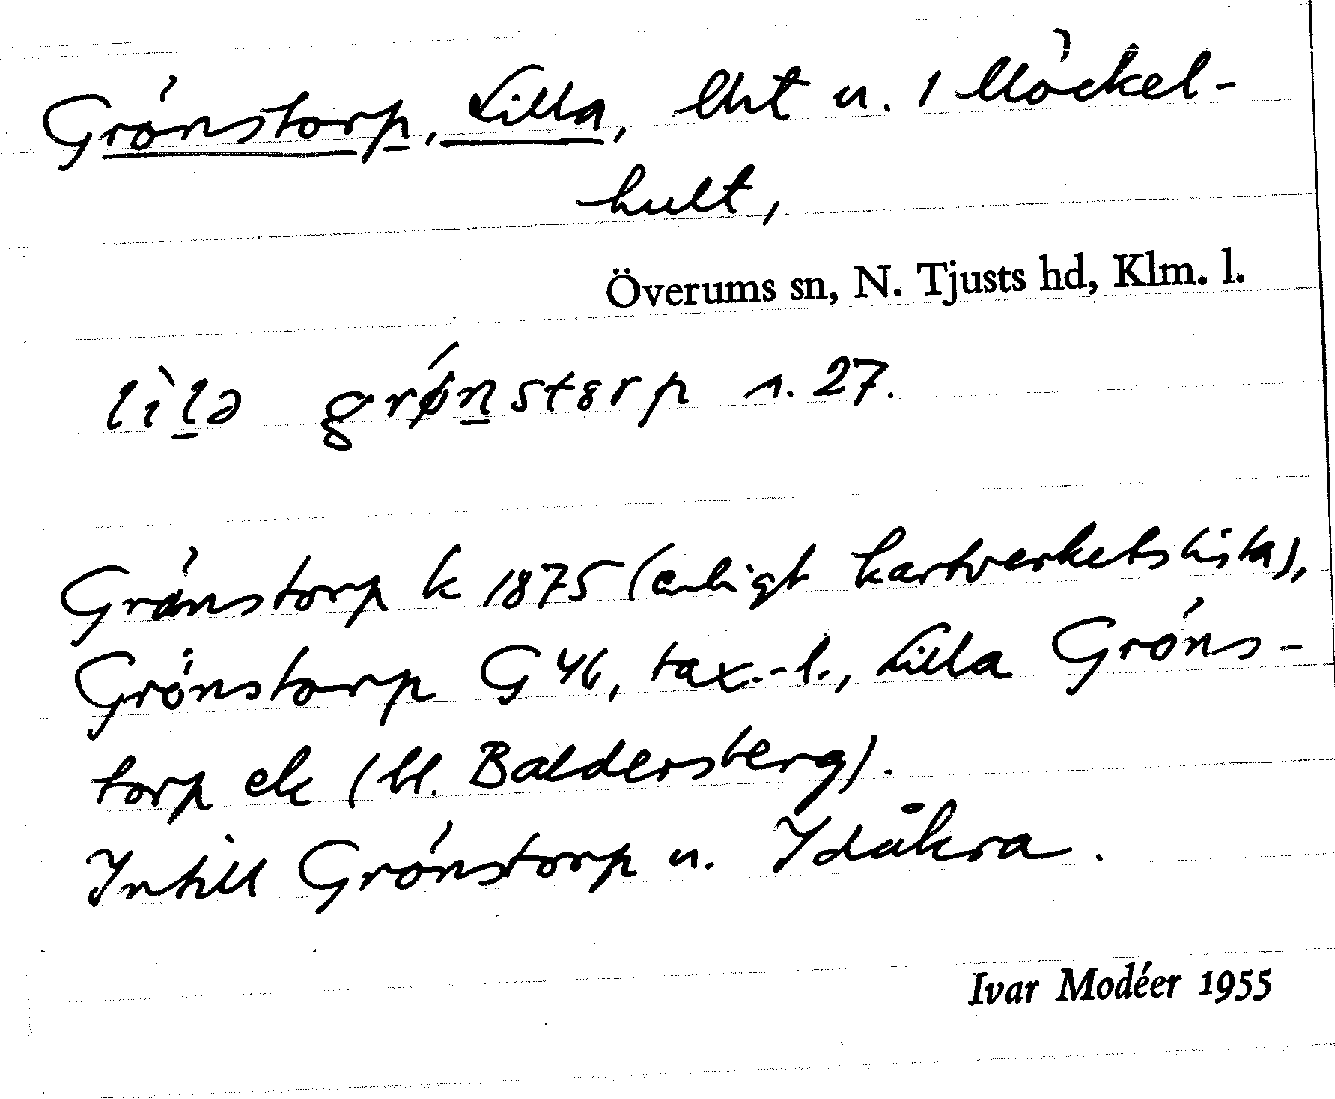 Grönstorp, Lilla, lht u. 1 Möckel-
hult,
Överums sn, N. Tjusts hd, Klm. l.
lìlə grǿnstɔrp s. 27.
Grönstorp k 1875 (enligt kartverkets lista),
Grönstorp G 46, tax.-l., Lilla Gröns-
torp ek (bl. Baldersberg).
Intill Grönstorp u. Idåkra.
Ivar Modéer 1955